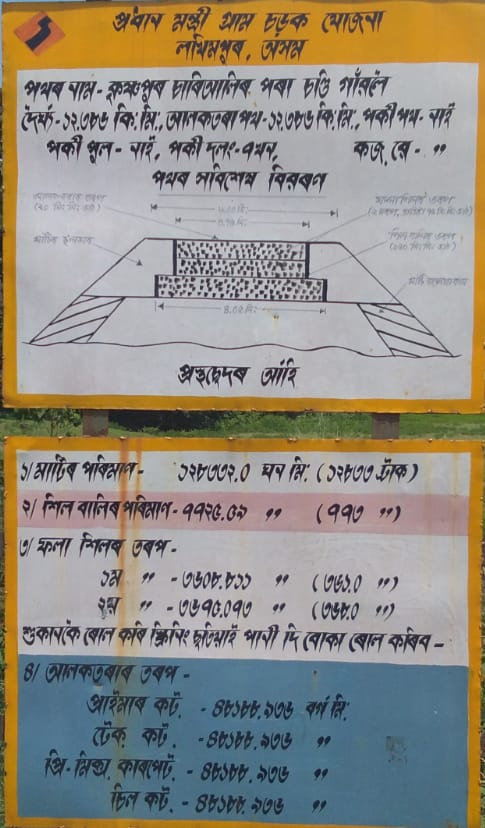 প্ৰধান মন্ত্ৰী গ্ৰাম চড়ক যোজনা
লখিমপুৰ, অসম
পথৰ নাম- কৃষ্ণপুৰ চাৰিআলিৰ পৰা চণ্ডি গাঁৱলৈ
দৈৰ্ঘ্য- ১২.৩৮৬ কি:মি:, আলকতৰা পথ- ১২.৩৮৬ কি:মি:, পকী পথ- নাই
পকী পুল- নাই, পকী দলং- ৭খন, কজ্ ৱে - "
পথৰ সবিশেষ বিৱৰণ
(২০ মি: মি: ডাঠ)
মাটিৰ ফুলকাষ
৪.০৫ মি:
প্ৰস্থচ্ছেদৰ আৰ্হি
১/ মাটিৰ পৰিমাণ- ১২৮৩৩২.০ ঘন মি: (১২৮৩৩ ট্ৰাক)
২/ শিল বালিৰ পৰিমাণ- ৭৭২৫.৫৯ " (৭৭৩ ")
৩/ ফলা শিলৰ তৰপ -
১ম " - ৩৬০৮.৮১১ " (৩৬১.০ ")
২য় " - ৩৬৭৫.০৭৩ " (৩৬৮.০ ")
শুকানকৈ ৰোল কৰি স্ক্ৰিনিং ছটিয়াই পানী দি বোকা ৰোল কৰিব -
৪/ আলকতৰাৰ তৰপ -
প্ৰাইমাৰ কট্. - ৪৮১৮৮.৯৩৬ বৰ্গ মি:
টেক্ কট্. - ৪৮১৮৮.৯৩৬ "
প্ৰি-মিক্স কাৰপেট্. - ৪৮১৮৮.৯৩৬ "
চিল কট্. - ৪৮১৮৮.৯৩৬ "